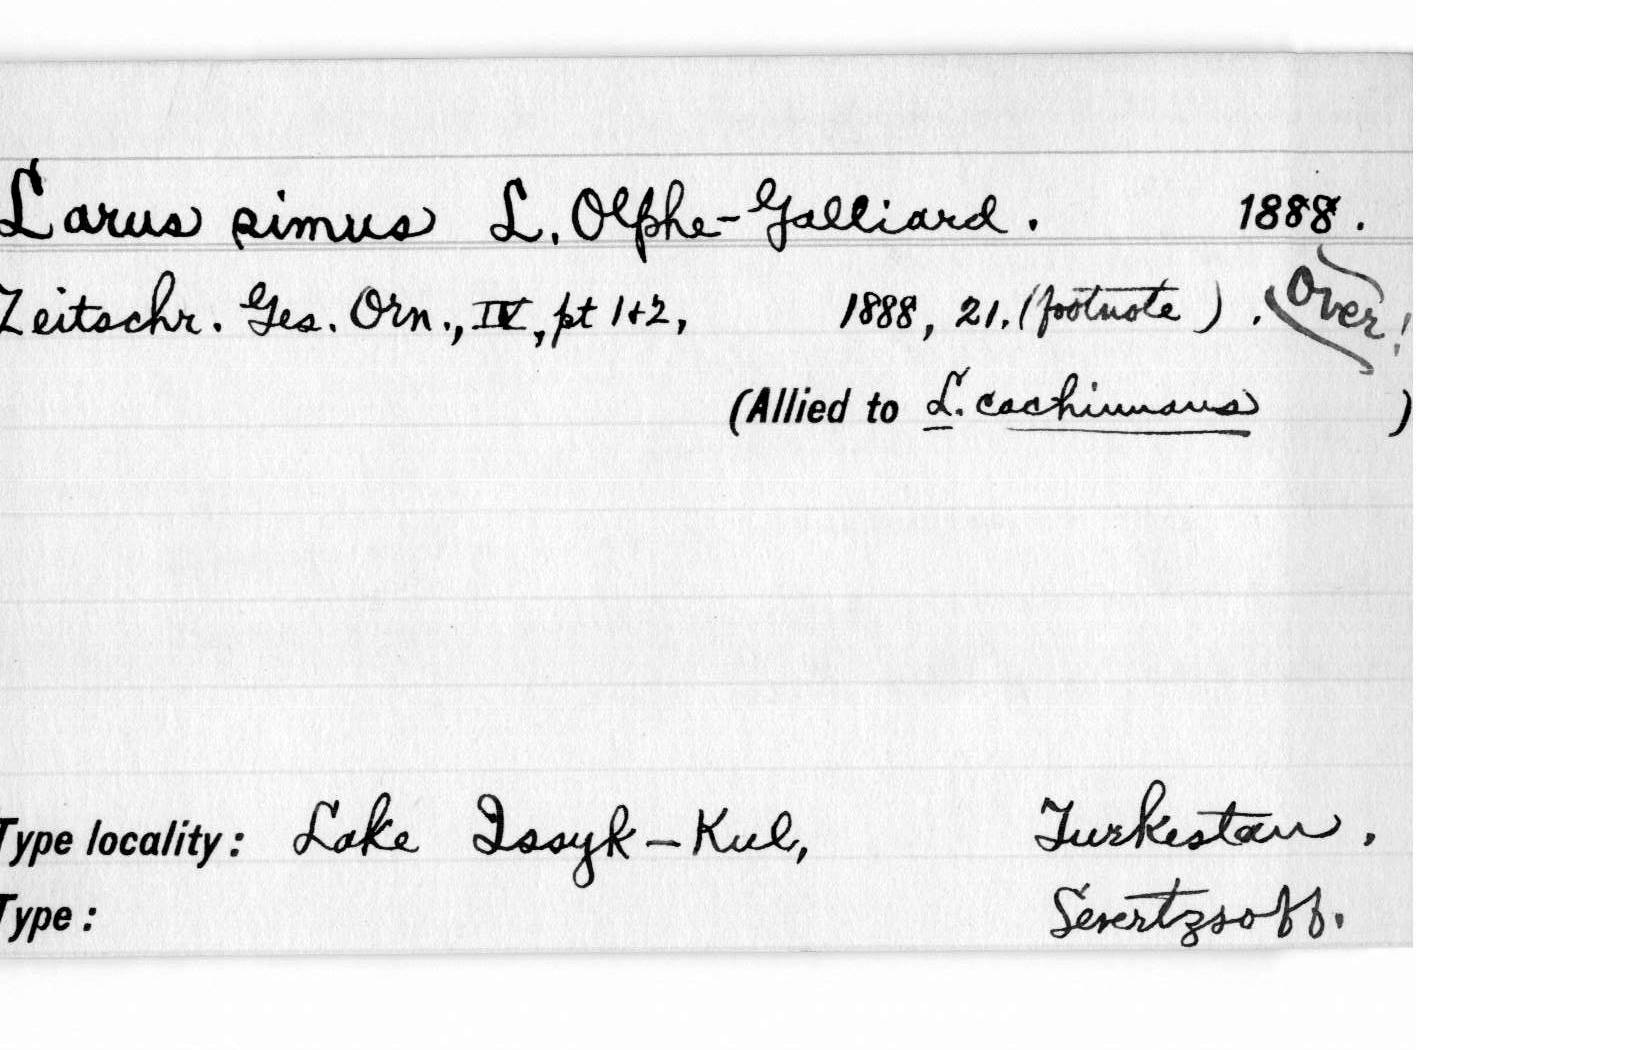 Larus simus L. Olphe-Galliard. 1888.
Zeitschr. Ges. Orn., IV, pt 1+2, 1888, 21. (footnote). Over!
(Allied to L. cachinnans )
Type locality: Lake Issyk-Kul, Turkestan,
Type: Severtzsoff.